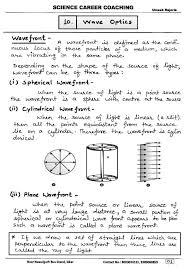 SCIENCE CAREER COACHING
10. Wave Optics
Wavefront:- A wavefront is defined as the conti
nuous locus of those particles of a medium, which
are vibrating in the same phase.
Depending on the shape of the source of light,
wavefront can be of three types:
(i) Spherical Wavefront →
When the source of light is a point source
the wavefront is a sphere with centre at the source
(ii) Cylindrical Wavefront →
When the source of light is linear (a slit)
then all the points equidistant from the source lie
on a cylinder. Therefore the wavefront is cylin
drical
(iii) Plane Wavefront →
When the point source or linear source of
light is at very large distance, a small portion of
spherical or cylindrical wave front appears to be
plane. Such a wavefront is called plane wavefront
If we draw a set of straight lines which are
perpendicular to the wavefront then these lines are
called the ray of light